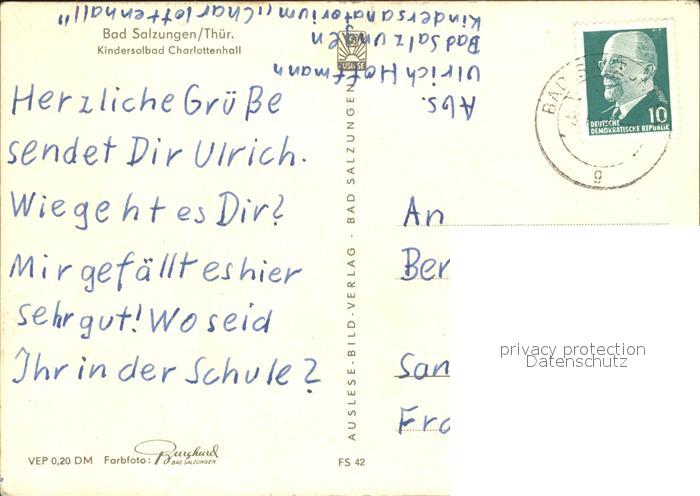 Bad Salzungen/Thür.
Kindersolbad Charlottenhall
Herzliche Grüße
sendet Dir Ulrich.
Wie geht es Dir?
Mir gefällt es hier
sehr gut! Wo seid
Ihr in der Schule?
VEP 0,20 DM Farbfoto: Burghard
BAD SALZUNGEN
AUSLESE-BILD-VERLAG · BAD SALZUNGEN
FS 42
Abs.
Ulrich Hoffmann
Bad Salzungen
Kindersanatorium "Charlottenhall"
DEUTSCHE
DEMOKRATISCHE REPUBLIK
10
BAD
g
An
Ber
San
Fra
privacy protection
Datenschutz